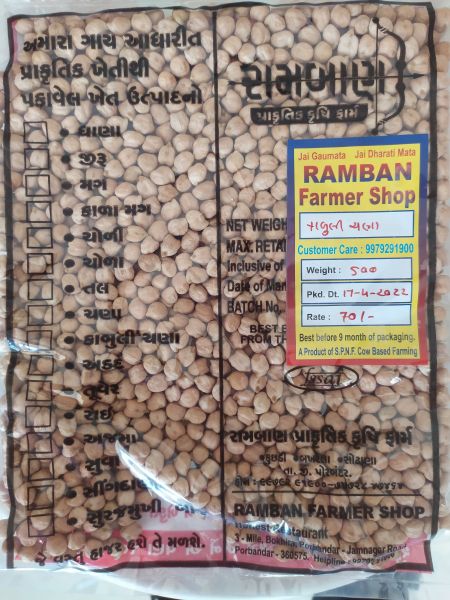 અમારા ગાય આધારીત
પ્રાકૃતિક ખેતીથી
પકાવેલ ખેત ઉત્પાદનો
ધાણા
જીરૂ
મગ
કાળા મગ
ચોળી
ચોળા
તલ
ચણા
કાબુલી ચણા
અડદ
તુવેર
રાઈ
અજમા
સુવા
સીંગદાણા
સુરજમુખી
જે વસ્તુ હાજર હશે તે મળશે.
રામબાણ
પ્રાકૃતિક કૃષિ ફાર્મ
Jai Gaumata Jai Dharati Mata
RAMBAN
Farmer Shop
કાબુલી ચણા
Customer Care : 9979291900
Weight : 500
Pkd. Dt. 17-4-2022
Rate : 70/-
Best before 9 month of packaging.
A Product of S.P.N.F. Cow Based Farming
NET WEIGH
MAX. RETAI
Inclusive of
Date of Man
BATCH No.
BEST
FROM TH
રામબાણ પ્રાકૃતિક કૃષિ ફાર્મ
તા. જી. પોરબંદર.
RAMBAN FARMER SHOP
Restaurant
3 - Mile, Bokhira, Porbandar - Jamnagar Road
Porbandar - 360575. Helpline